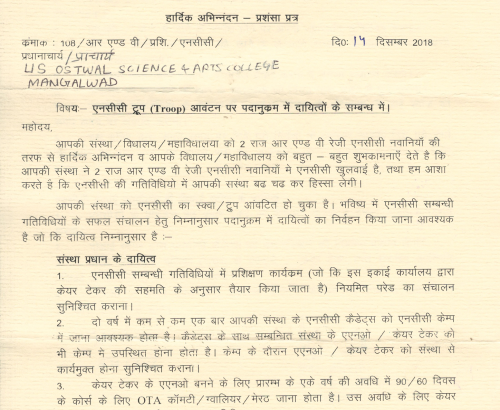 हार्दिक अभिनन्दन – प्रशंसा प्रत्र
क्रमांक : 108/आर एण्ड वी/प्रशि./एनसीसी/ दि0: 14 दिसम्बर 2018
प्रधानाचार्य/प्राचार्य
US OSTWAL SCIENCE & ARTS COLLEGE
MANGALWAD
विषय:– एनसीसी ट्रूप (Troop) आवंटन पर पदानुक्रम में दायित्वों के सम्बन्ध में।
महोदय,
आपकी संस्था/विघालय/महाविघालया को 2 राज आर एण्ड वी रेजी एनसीसी नवानियॉं की
तरफ से हार्दिक अभिनन्दन व आपके विघालय/महाविघालय को बहुत – बहुत शुभकामनाऐं देते है कि
आपकी संस्था ने 2 राज आर एण्ड वी रेजी एनसीसी नवानियॉं मे एनसीसी खुलवाई है, तथा हम आशा
करते है कि एनसीसी की गतिविधियो में आपकी सस्था बढ चढ कर हिस्सा लेगी।
आपकी संस्था को एनसीसी का स्क्वा/ट्रूप आंवटित हो चुका है। भविष्य में एनसीसी सम्बन्धी
गतिविधियों के सफल संचालन हेतु निम्नानुसार पदानुक्रम में दायित्वों का निर्वहन किया जाना आवश्यक
है जो कि दायित्व निम्नानुसार है :–
संस्था प्रधान के दायित्व
1. एनसीसी सम्बन्धी गतिविधियों में प्रशिक्षण कार्यक्रम (जो कि इस इकाई कार्यालय द्वारा
केयर टेकर की सहमति के अनुसार तैयार किया जाता है) नियमित परेड का संचालन
सुनिश्चित कराना।
2. दो वर्ष में कम से कम एक बार आपकी संस्था के एनसीसी कैडेट्स को एनसीसी केम्प
में जाना आवश्यक होता है। कैडेटस के साथ सम्बन्धित संस्था के एएनओ / केयर टेकर को
भी केम्प मे उपस्थित होना होता है। केम्प के दौरान एएनओ / केयर टेकर को संस्था से
कार्यमुक्त होना सुनिश्चित कराना।
3. केयर टेकर के एएनओ बनने के लिए प्रारम्भ के एके वर्ष की अवधि में 90/60 दिवस
के कोर्स के लिए OTA कॉमटी/ग्वालियर/मेरठ जाना होता है। उस अवधि के लिए केयर